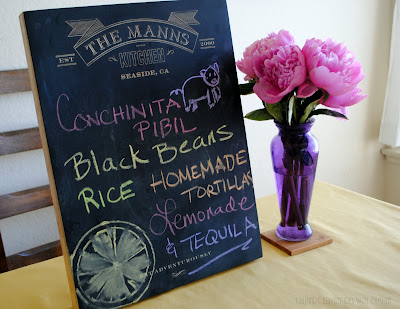 THE MANNS
EST KITCHEN 2000
SEASIDE, CA
CONCHINITA
PIBIL
Black Beans
RICE HOMEMADE
TORTILLAS
Lemonade
& TEQUILA
ADVENTUROUSLY